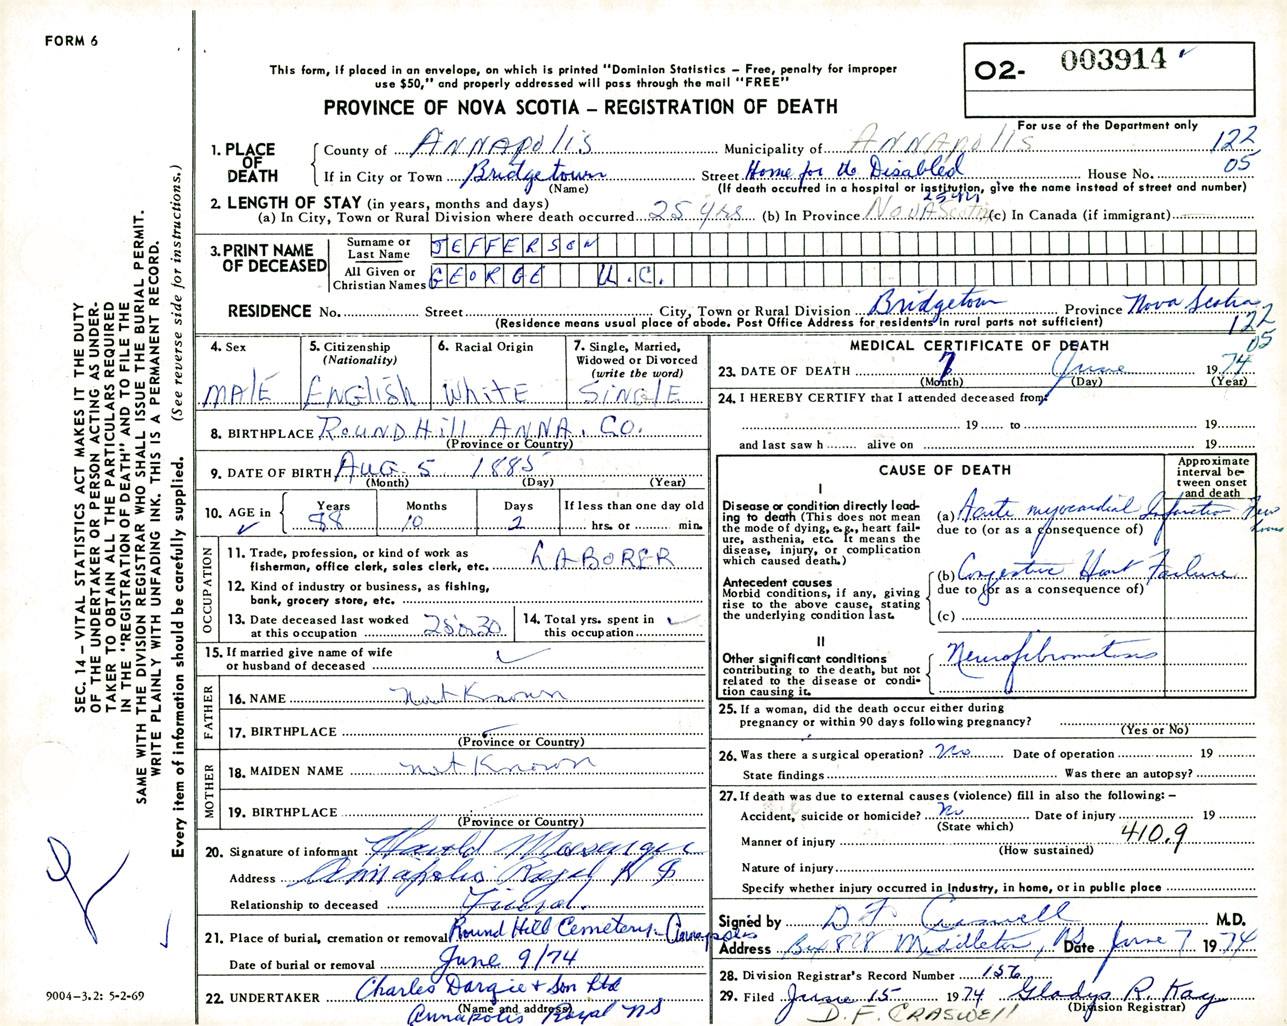 FORM 6
This form, if placed in an envelope, on which is printed "Dominion Statistics – Free, penalty for improper
use $50," and properly addressed will pass through the mail "FREE"
PROVINCE OF NOVA SCOTIA – REGISTRATION OF DEATH
O2- 003914
For use of the Department only
122
05
1. PLACE OF DEATH
County of ANNAPOLIS Municipality of ANNAPOLIS
If in City or Town Bridgetown Street Home for the Disabled House No.
(Name) (If death occurred in a hospital or institution, give the name instead of street and number)
2. LENGTH OF STAY (in years, months and days)
(a) In City, Town or Rural Division where death occurred 25 yrs (b) In Province NOVA Scotia (c) In Canada (if immigrant)
3. PRINT NAME OF DECEASED
Surname or Last Name JEFFERSON
All Given or Christian Names GEORGE U.C.
RESIDENCE No. Street City, Town or Rural Division Bridgetown Province Nova Scotia
(Residence means usual place of abode. Post Office Address for residents in rural parts not sufficient)
122
05
4. Sex
MALE
5. Citizenship
(Nationality)
English
6. Racial Origin
White
7. Single, Married,
Widowed or Divorced
(write the word)
SINGLE
8. BIRTHPLACE ROUND Hill ANNA. CO.
(Province or Country)
9. DATE OF BIRTH Aug 5 1885
(Month) (Day) (Year)
10. AGE in
Years Months Days If less than one day old
88 10 2 hrs. or min.
OCCUPATION
11. Trade, profession, or kind of work as
fisherman, office clerk, sales clerk, etc. LABORER
12. Kind of industry or business, as fishing,
bank, grocery store, etc.
13. Date deceased last worked
at this occupation
14. Total yrs. spent in
this occupation
15. If married give name of wife
or husband of deceased
FATHER
16. NAME Not Known
17. BIRTHPLACE
(Province or Country)
MOTHER
18. MAIDEN NAME not Known
19. BIRTHPLACE
(Province or Country)
20. Signature of informant Harold Messenger
Address Annapolis Royal N S
Relationship to deceased Friend.
21. Place of burial, cremation or removal Round Hill Cemetery - Annapolis
Date of burial or removal June 9/74
22. UNDERTAKER Charles Dargie + Son Ltd
(Name and address)
Annapolis Royal NS
MEDICAL CERTIFICATE OF DEATH
23. DATE OF DEATH 7 June 19 74
(Month) (Day) (Year)
24. I HEREBY CERTIFY that I attended deceased from
19 to
19
and last saw h alive on 19
CAUSE OF DEATH
Approximate
interval be-
tween onset
and death
I
Disease or condition directly lead-
ing to death (This does not mean
the mode of dying, e.g., heart fail-
ure, asthenia, etc. It means the
disease, injury, or complication
which caused death.)
(a) Acute myocardial Infarction Few hours
due to (or as a consequence of)
Antecedent causes
Morbid conditions, if any, giving
rise to the above cause, stating
the underlying condition last.
(b) Congestive Heart Failure
due to (or as a consequence of)
(c)
II
Other significant conditions
contributing to the death, but not
related to the disease or condi-
tion causing it.
Neurofibromatosis
25. If a woman, did the death occur either during
pregnancy or within 90 days following pregnancy?
(Yes or No)
26. Was there a surgical operation? No Date of operation 19
State findings Was there an autopsy?
27. If death was due to external causes (violence) fill in also the following: –
Accident, suicide or homicide? No Date of injury 19
(State which)
Manner of injury 410.9
(How sustained)
Nature of injury
Specify whether injury occurred in industry, in home, or in public place
Signed by D F Craswell M.D.
Address Box 828 Middleton, NS Date June 7 1974
28. Division Registrar's Record Number 156
29. Filed June 15 1974 Gladys R. Kay
(Division Registrar)
D.F. CRASWELL
SEC. 14 – VITAL STATISTICS ACT MAKES IT THE DUTY
OF THE UNDERTAKER OR PERSON ACTING AS UNDER-
TAKER TO OBTAIN ALL THE PARTICULARS REQUIRED
IN THE "REGISTRATION OF DEATH" AND TO FILE THE
SAME WITH THE DIVISION REGISTRAR WHO SHALL ISSUE THE BURIAL PERMIT.
WRITE PLAINLY WITH UNFADING INK. THIS IS A PERMANENT RECORD.
Every item of information should be carefully supplied. (See reverse side for instructions.)
9004-3.2: 5-2-69